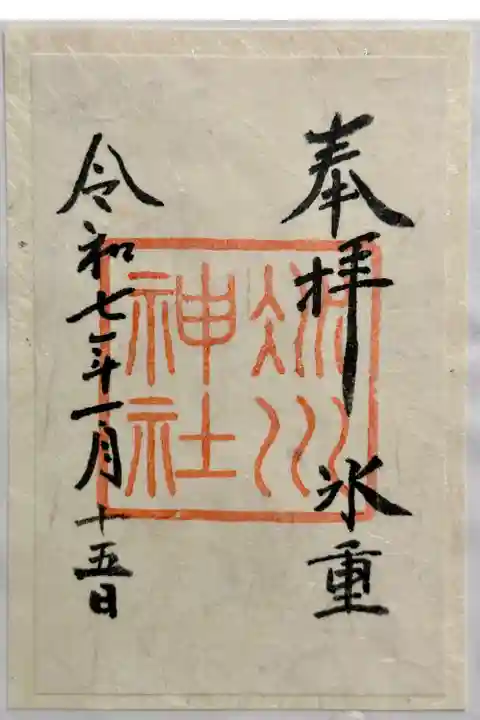 奉拝 氷重
令和七年一月十五日
川
神社